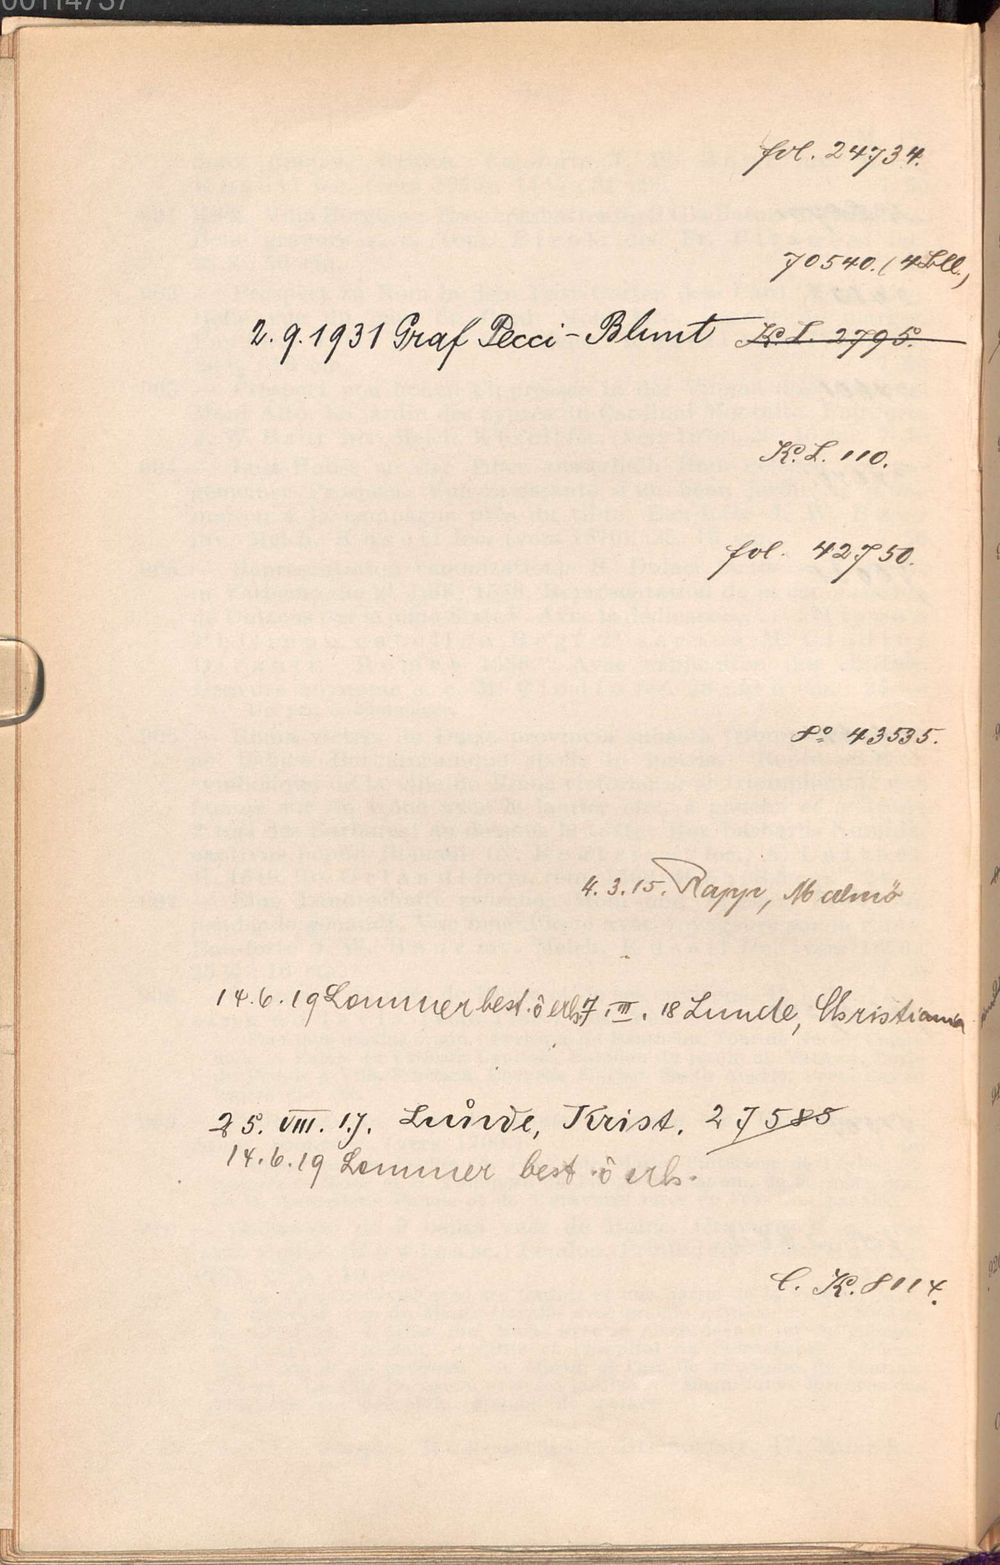 00114737
fol. 24734.
70540. (4 Bll.)
2.9.1931 Graf Pecci-Blunt K.L. 2795.
K.L. 110.
fol. 42750.
8º 43535.
4.3.15. Rapp, Malmö
14.6.19 Lommer best. ö erh. 7.III.18 Lunde, Christiania
25. VIII. 17. Lunde, Krist. 27585
14.6.19 Lommer best. ö erh.
C. K. 8114.